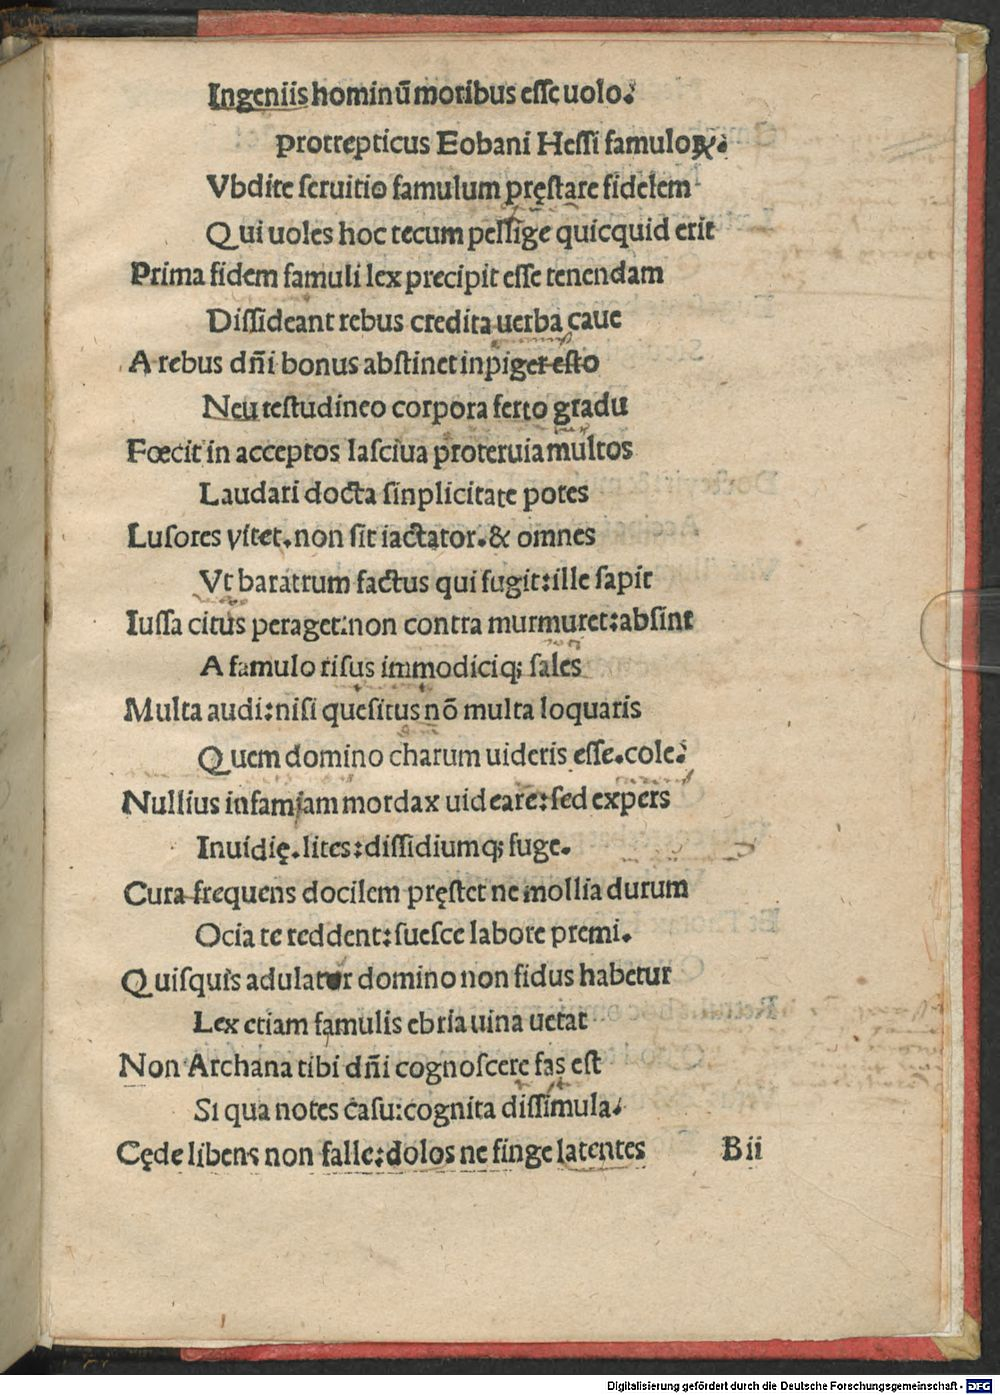 Ingeniis hominū moribus esse uolo.
protrepticus Eobani Hessi famuloꝝ.
Vbdite seruitio famulum pręstare fidelem
Qui uoles hoc tecum pellige quicquid erit
Prima fidem famuli lex precipit esse tenendam
Dissideant rebus credita uerba caue
A rebus dn̄i bonus abstinet inpiger esto
Neu testudineo corpora ferto gradu
Fœcit in acceptos lasciua proteruia multos
Laudari docta sinplicitate potes
Lusores vitet. non sit iactator. & omnes
Vt baratrum factus qui fugit: ille sapit
Iussa citus peraget: non contra murmuret: absint
A famulo risus immodiciq; sales
Multa audi: nisi quesitus nō multa loquaris
Quem domino charum uideris esse. cole.
Nullius infamiam mordax uideare: sed expers
Inuidię. lites: dissidiumq; fuge.
Cura frequens docilem pręstet ne mollia durum
Ocia te reddent: suesce labore premi.
Quisquis adulator domino non fidus habetur
Lex etiam famulis ebria uina uetat
Non Archana tibi dn̄i cognoscere fas est
Si qua notes casu: cognita dissimula.
Cęde libens non falle: dolos ne finge latentes Bii
Digitalisierung gefördert durch die Deutsche Forschungsgemeinschaft - DFG